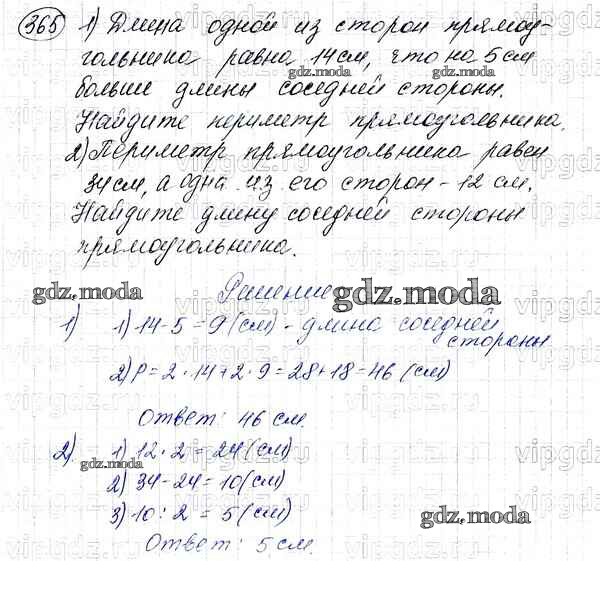 365 1) Длина одной из сторон прямоу-
гольника равна 14 см, что на 5 см
gdz.moda gdz.moda
больше длины соседней стороны.
Найдите периметр прямоугольника.
2) Периметр прямоугольника равен
34 см, а одна из его сторон - 12 см.
Найдите длину соседней стороны
прямоугольника.
Решение
gdz.moda gdz.moda
1) 1) 14 - 5 = 9 (см) - длина соседней
стороны
2) P = 2 · 14 + 2 · 9 = 28 + 18 = 46 (см)
Ответ: 46 см.
2) 1) 12 · 2 = 24 (см)
gdz.moda
2) 34 - 24 = 10 (см)
3) 10 : 2 = 5 (см)
gdz.moda
Ответ: 5 см.